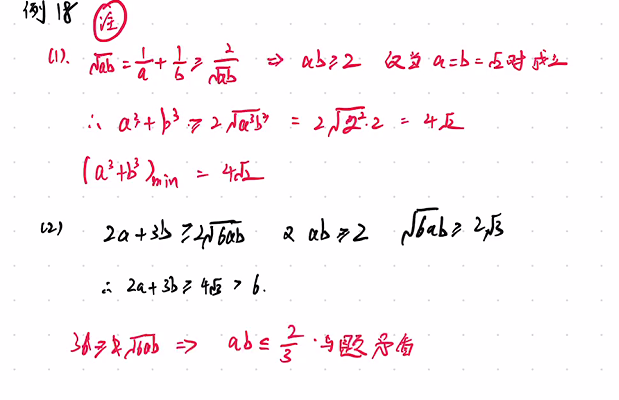 例18 注
(1). √ab = 1/a + 1/b ≥ 2/√ab ⇒ ab≥2 仅当 a=b=√2时成立
∴ a³+b³ ≥ 2√a³b³ = 2√2²·2 = 4√2
(a³+b³)min = 4√2
(2) 2a+3b ≥ 2√6ab 又 ab≥2 √6ab ≥ 2√3
∴ 2a+3b ≥ 4√3 > 6.
√6ab ⇒ ab ≤ 2/3 · 与题矛盾